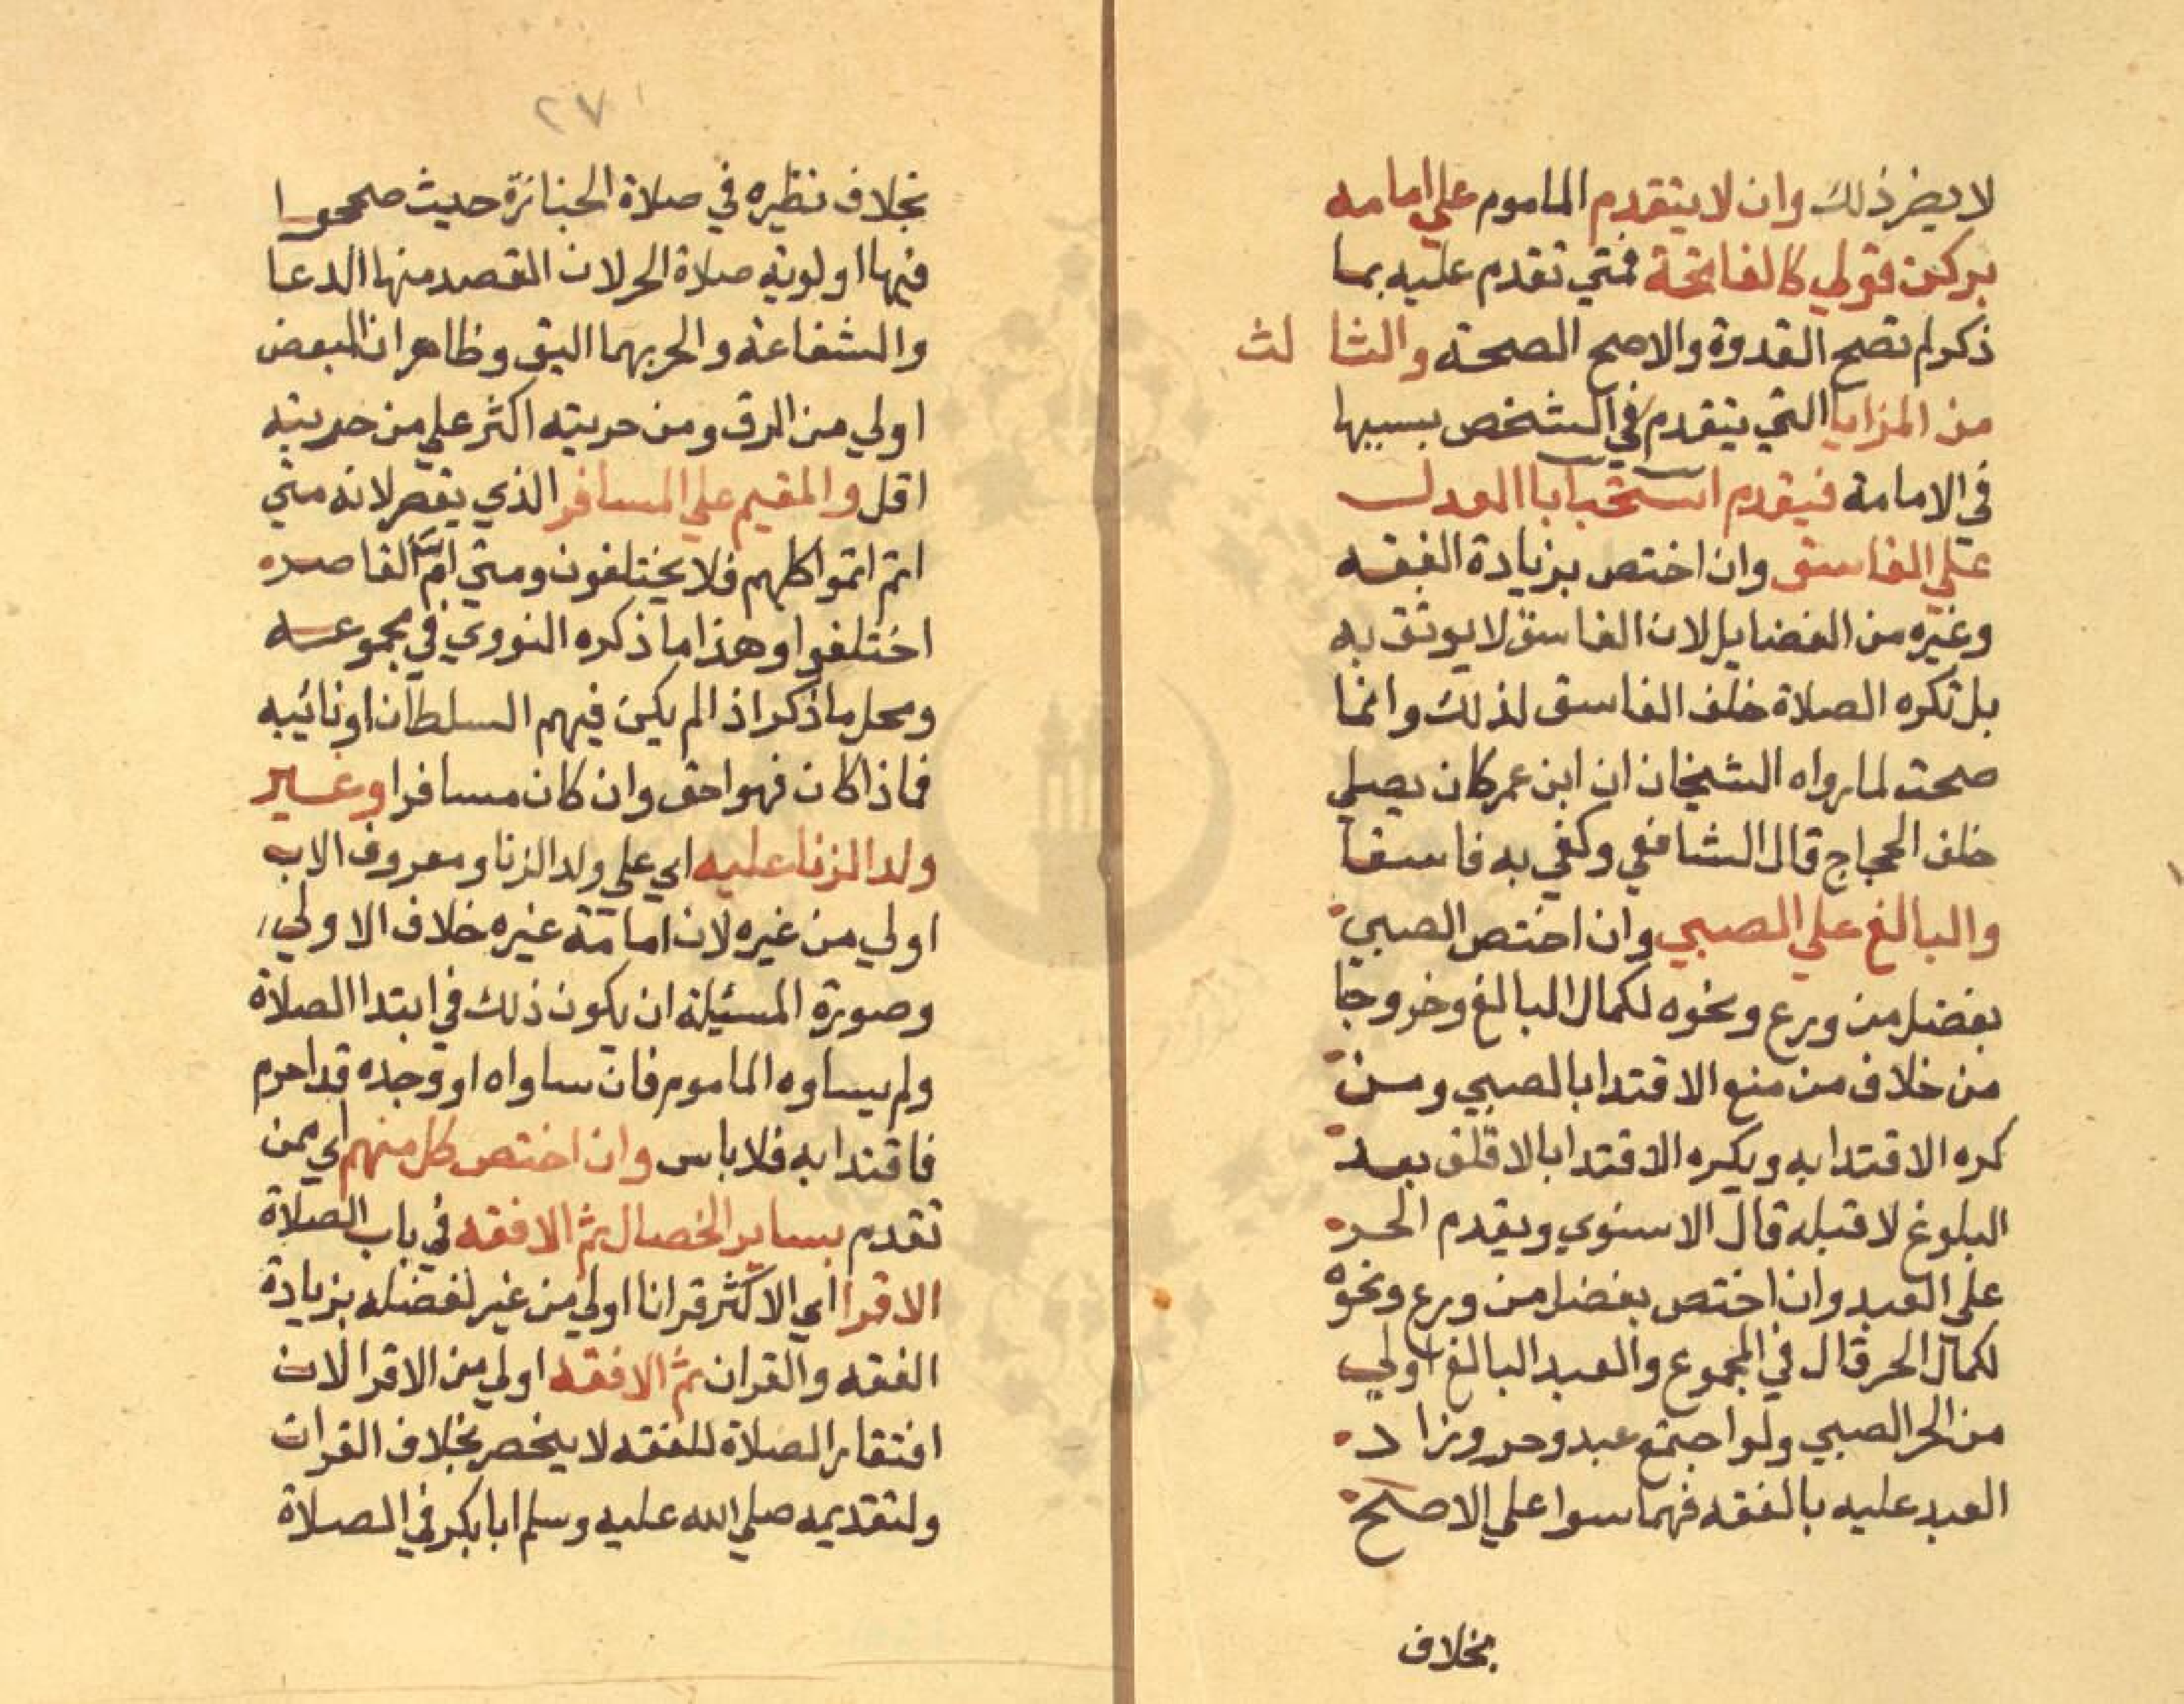 لا يضر ذلك وان لا يتقدم الماموم علي امامه
بركن قولي كالفاتحة فمتي تقدم عليه بما
ذكر لم تصح القدوة والاصح الصحة والثا لث
من المزايا التي يتقدم في الشخص بسببها
في الامامة فيقدم استحبابا العدل
علي الفاسق وان اختص بزيادة الفقه
وغيره من الفضايل لان الفاسق لا يوثق به
بل تكره الصلاة خلف الفاسق لذلك وانما
صحت لما رواه الشيخان ان ابن عمر كان يصلي
خلف الحجاج قال الشافعي وكفي به فاسقا
والبالغ علي الصبي وان اختص الصبي
بفضل من ورع ونحوه لكمال البالغ وخروجا
من خلاف من منع الاقتدا بالصبي ومن
كره الاقتدا به ويكره الاقتدا بالاقلف بعد
البلوغ لا قبله قال الاسنوي ويقدم الحر
علي العبد وان اختص بفضل من ورع ونحوه
لكمال الحر قال في المجموع والعبد البالغ اولي
من الحر الصبي ولو اجتمع عبد وحر وزاد
العبد عليه بالفقه فهما سوا علي الاصح
بخلاف
٢٧
بخلاف نظيره في صلاة الجنازة حديث صححوا
فيها اولوية صلاة الحر لان القصد منها الدعا
والشفاعة والحر بهما اليق وظاهر ان المبعض
اولي من الرق ومن حريته اكثر علي من حريته
اقل والمقيم علي المسافر الذي يقصر لانه متي
اتم اتموا كلهم فلا يختلفون ومتي ام القاصر
اختلفوا وهذا ما ذكره النووي في مجموعه
ومحل ما ذكر اذا لم يكن فيهم السلطان او نائيبه
فاذا كان فهو احق وان كان مسافرا وغير
ولد الزنا عليه اي علي ولد الزنا ومعروف الاب
اولي من غيره لان امامة غيره خلاف الاولي
وصورة المسئيلة ان يكون ذلك في ابتدا الصلاة
ولم يساوه الماموم فان ساواه او وجده قد احرم
فاقتدا به فلا باس وان اختص كل منهم اي ممن
تقدم بساير الخصال ثم الافقه في باب الصلاة
الاقرا اي الاكثر قرانا اولي من غير لفضله بزيادة
الفقه والقران ثم الافقه اولي من الاقرا لان
افتقار الصلاة للفقه لا ينحصر بخلاف القران
ولتقديمه صلي الله عليه وسلم ابا بكر في الصلاة